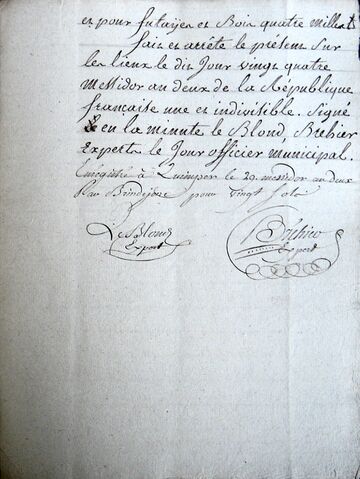 et pour futayes et Bois quatre mille
fait et arrêté le présent sur
les lieux le dit Jour vingt quatre
Messidor an deux de la République
française une et indivisible. Signé
en la minute le Blond, Brehier
Experts le Jour officier municipal.
Enregistré à Quimper le 29 messidor an deux
par pour vingt sols
Le Blond
Expert
Bréhier
Expert